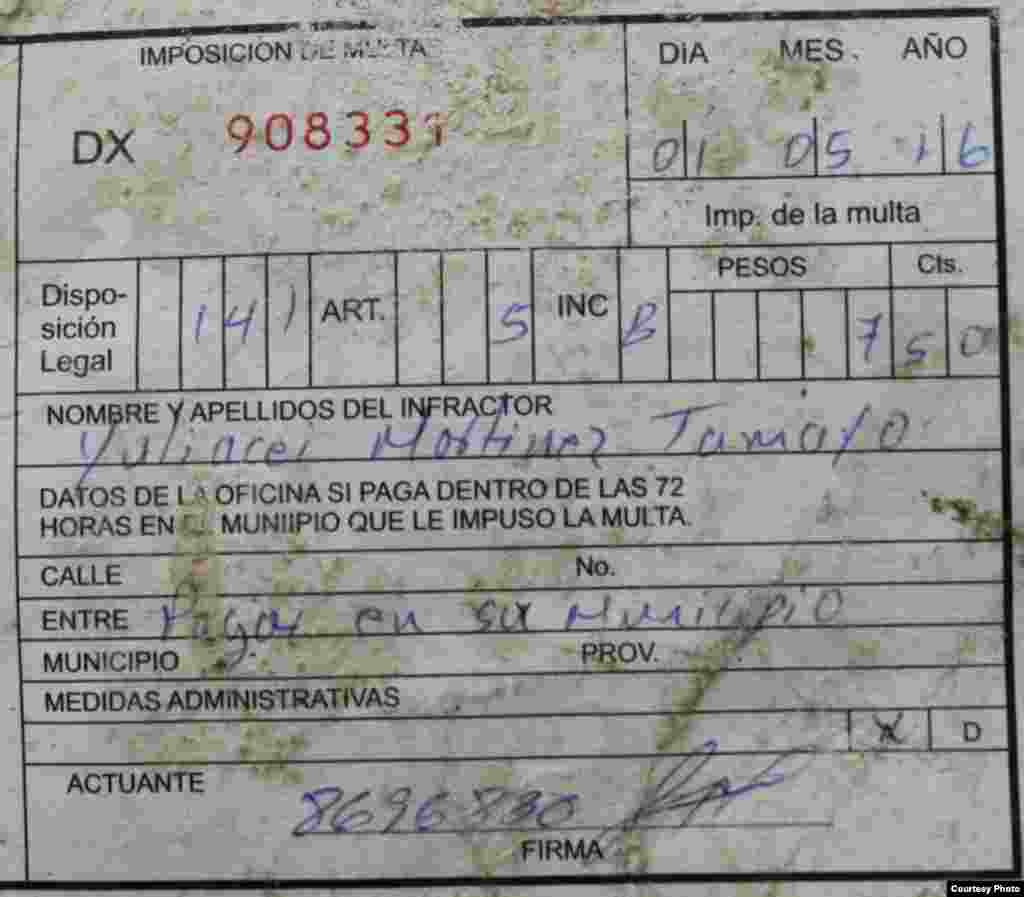 IMPOSICION DE MULTA
DIA MES. AÑO
DX 908331
01 05 16
Imp. de la multa
Dispo-
sición
Legal
141 ART. 5 INC B
PESOS Cts.
7 50
NOMBRE Y APELLIDOS DEL INFRACTOR
Martinez Tamayo
DATOS DE LA OFICINA SI PAGA DENTRO DE LAS 72
HORAS EN EL MUNIIPIO QUE LE IMPUSO LA MULTA.
CALLE No.
ENTRE Pagar en su Municipio
MUNICIPIO PROV.
MEDIDAS ADMINISTRATIVAS
X D
ACTUANTE
8696830
FIRMA
Courtesy Photo